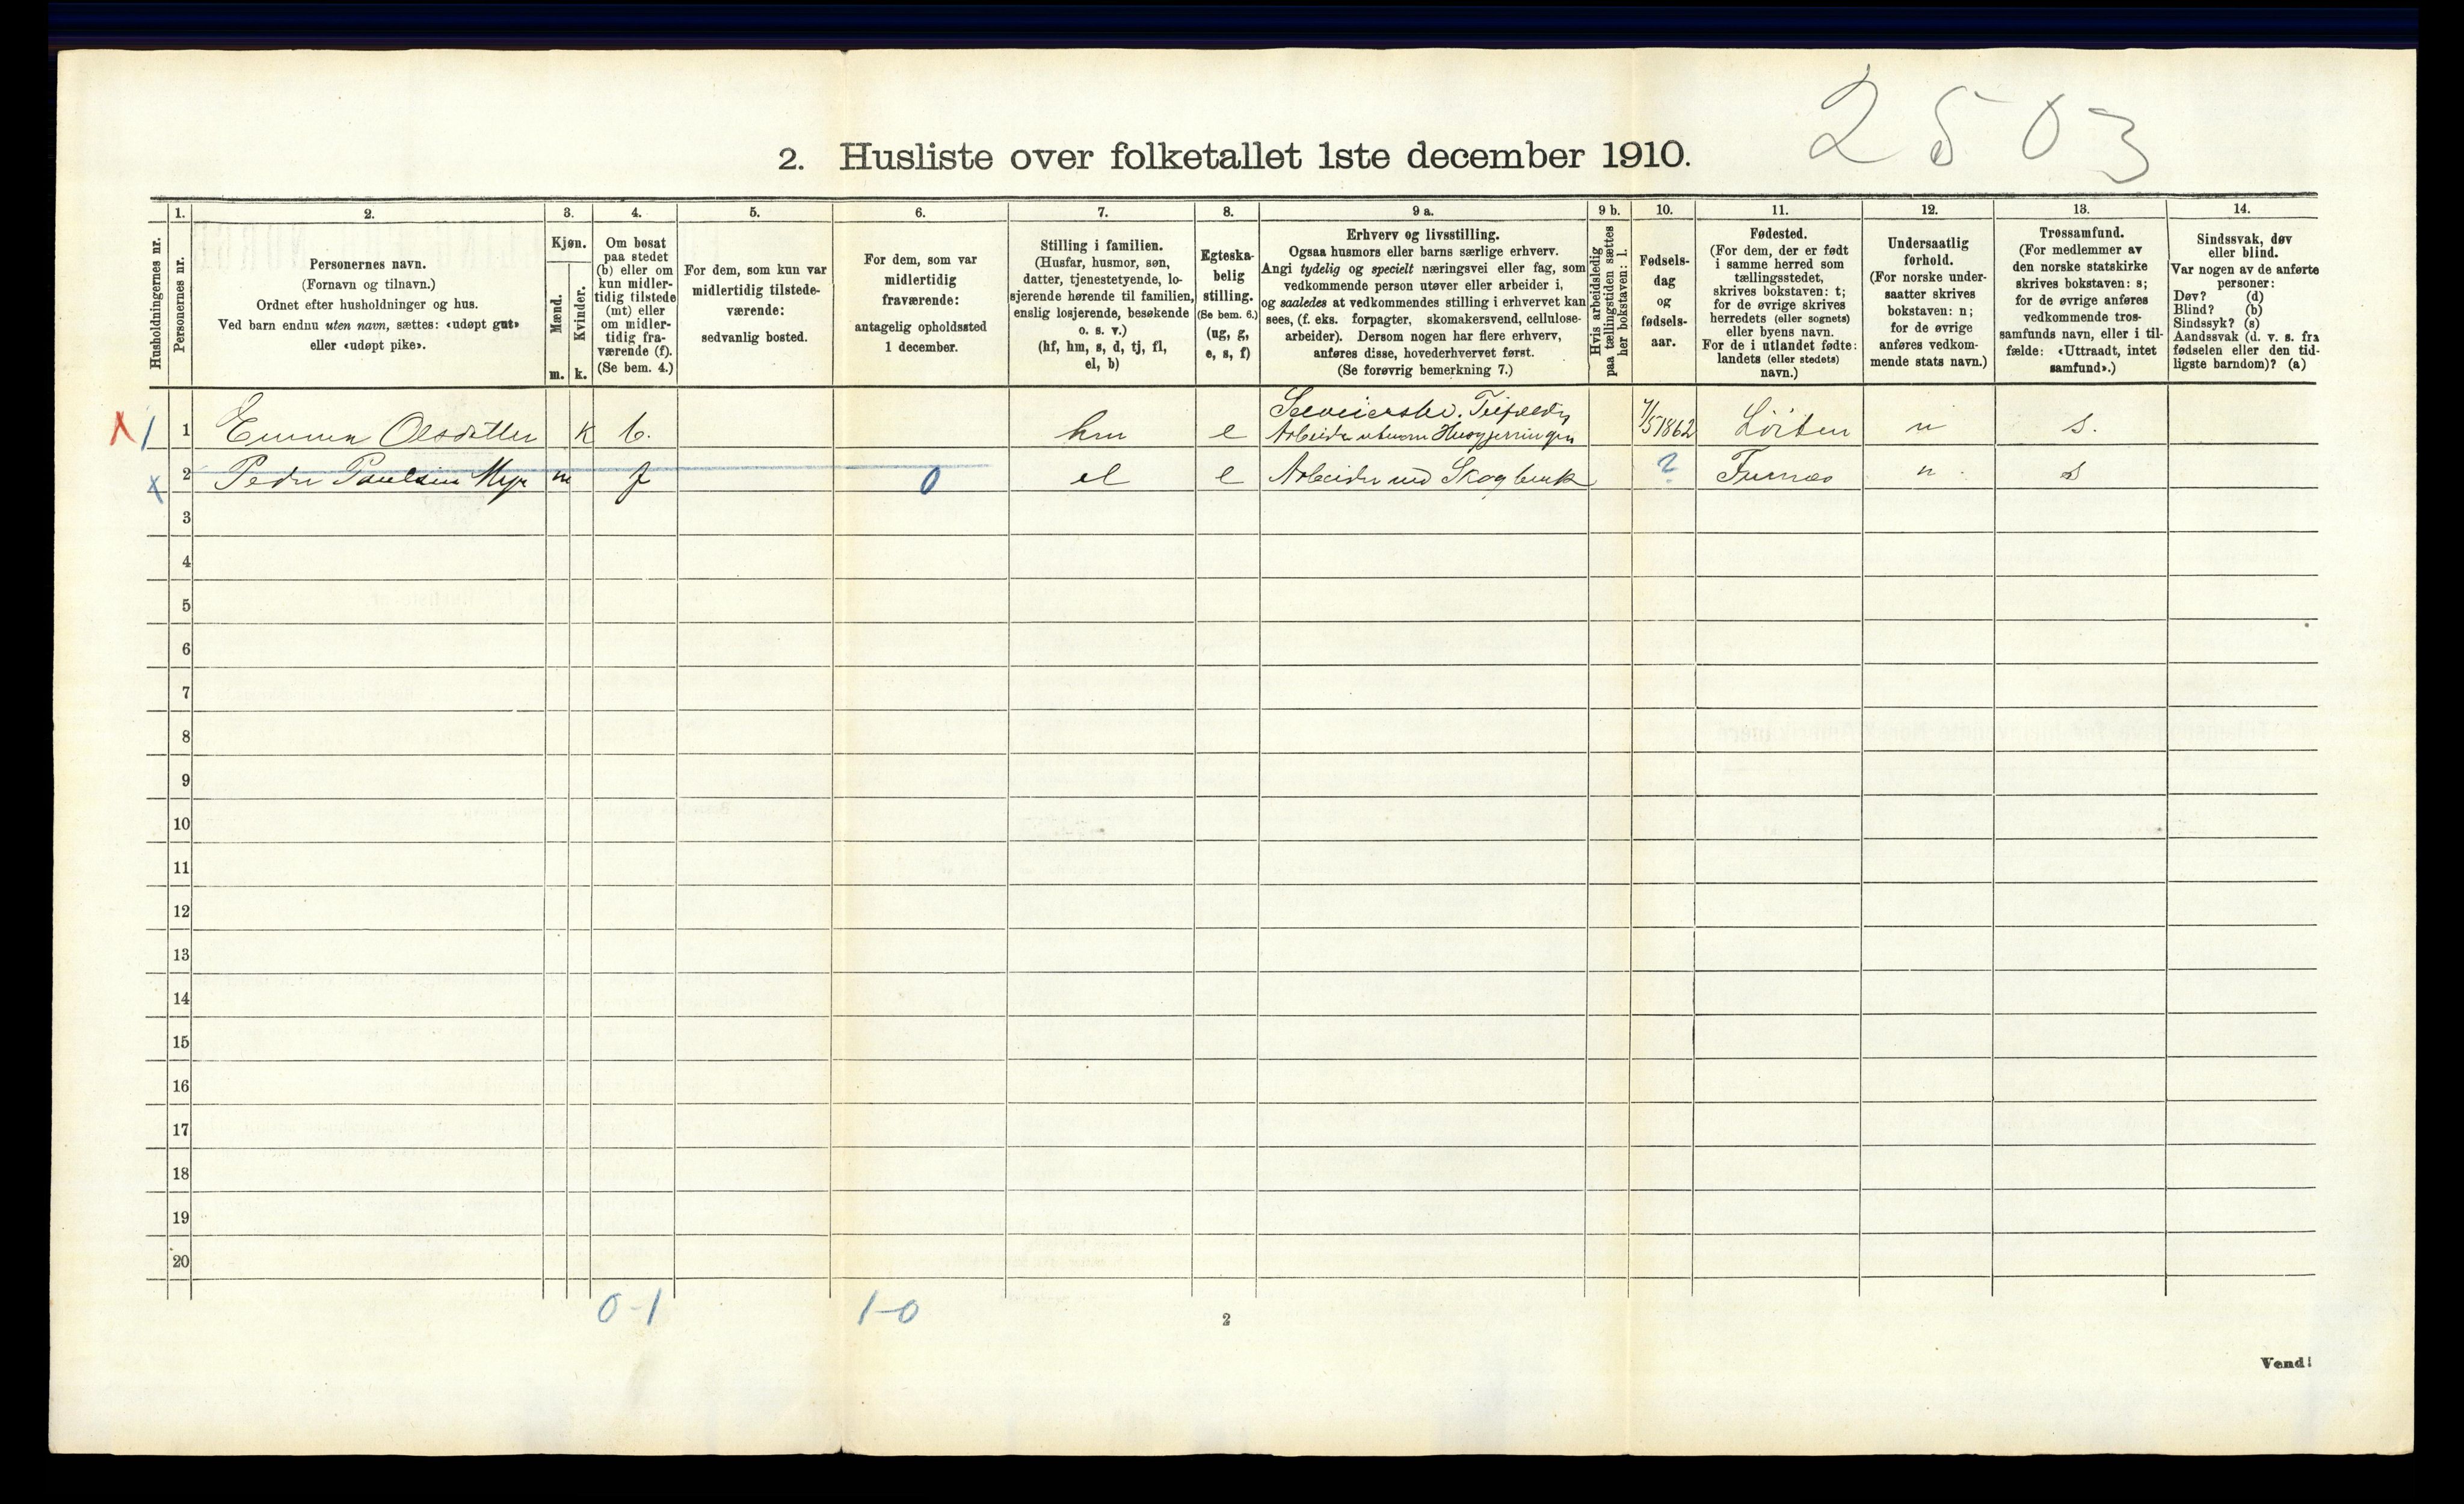 2503
2. Husliste over folketallet 1ste december 1910.
Husholdningernes nr.
1.
Personernes nr.
2.
Personernes navn.
(Fornavn og tilnavn.)
Ordnet efter husholdninger og hus.
Ved barn endnu uten navn, sættes: «udøpt gut»
eller «udøpt pike».
3.
Kjøn.
Mænd.
Kvinder.
m. k.
4.
Om bosat
paa stedet
(b) eller om
kun midler-
tidig tilstede
(mt) eller
om midler-
tidig fra-
værende (f).
(Se bem. 4.)
5.
For dem, som kun var
midlertidig tilstede-
værende:
sedvanlig bosted.
6.
For dem, som var
midlertidig
fraværende:
antagelig opholdssted
1 december.
7.
Stilling i familien.
(Husfar, husmor, søn,
datter, tjenestetyende, lo-
sjerende hørende til familien,
enslig losjerende, besøkende
o. s. v.)
(hf, hm, s, d, tj, fl,
el, b)
8.
Egteska-
belig
stilling.
(Se bem. 6.)
(ug, g,
e, s, f)
9 a.
Erhverv og livsstilling.
Ogsaa husmors eller barns særlige erhverv.
Angi tydelig og specielt næringsvei eller fag, som
vedkommende person utøver eller arbeider i,
og saaledes at vedkommendes stilling i erhvervet kan
sees, (f. eks. forpagter, skomakersvend, cellulose-
arbeider). Dersom nogen har flere erhverv,
anføres disse, hovederhvervet først.
(Se forøvrig bemerkning 7.)
9 b.
Hvis arbeidsledig
paa tællingstiden sættes
her bokstaven: l.
10.
Fødsels-
dag
og
fødsels-
aar.
11.
Fødested.
(For dem, der er født
i samme herred som
tællingsstedet,
skrives bokstaven: t;
for de øvrige skrives
herredets (eller sognets)
eller byens navn.
For de i utlandet fødte:
landets (eller stedets)
navn.)
12.
Undersaatlig
forhold.
(For norske under-
saatter skrives
bokstaven: n;
for de øvrige
anføres vedkom-
mende stats navn.)
13.
Trossamfund.
(For medlemmer av
den norske statskirke
skrives bokstaven: s;
for de øvrige anføres
vedkommende tros-
samfunds navn, eller i til-
fælde: «Uttraadt, intet
samfund».)
14.
Sindssvak, døv
eller blind.
Var nogen av de anførte
personer:
Døv? (d)
Blind? (b)
Sindssyk? (s)
Aandssvak (d. v. s. fra
fødselen eller den tid-
ligste barndom)? (a)
X 1 1 Emma Olsdatter k b. hm e Arbeider utenom Husgjerningen 7/5 1862 Löiten n s.
X 2 Peder Paulsen Myr m f 0 el e Arbeider ved Skogbruk ? Furnæs n s
3
4
5
6
7
8
9
10
11
12
13
14
15
16
17
18
19
20
0-1 1-0
2
Vend!